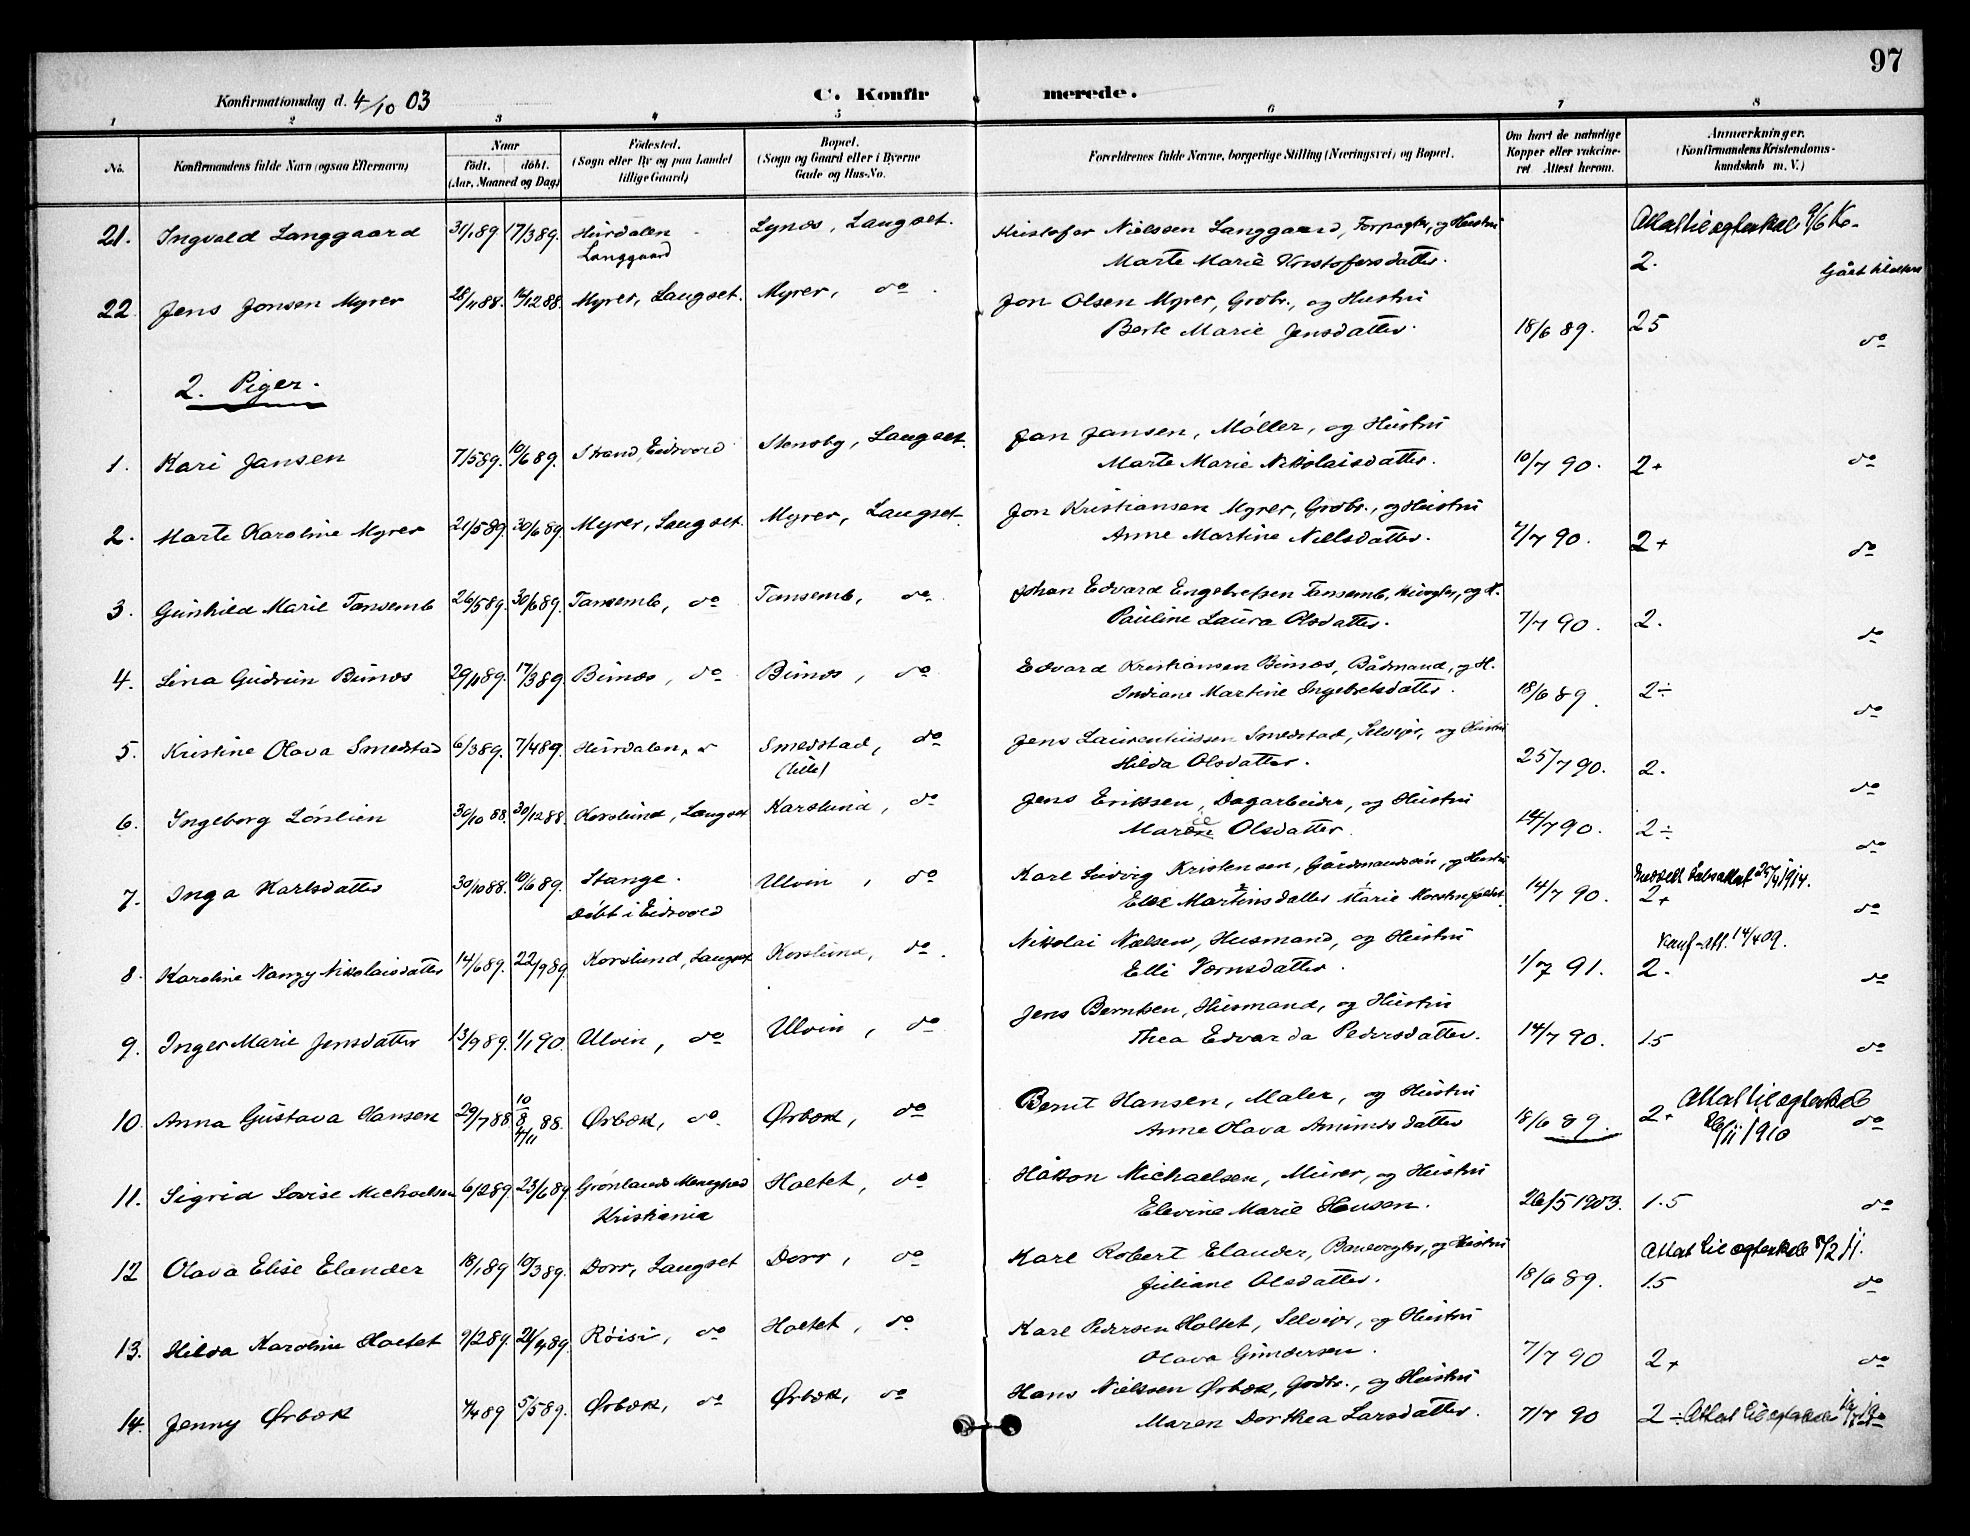 97
Konfirmationsdag d. 4/10 03 C. Konfirmerede.
1 2 3 4 5 6 7 8
No. Konfirmandens fulde Navn (ogsaa Efternavn) Naar födt. döbt. (Aar, Maaned og Dag) Födested. (Sogn eller By og paa Landet tillige Gaard) Bopæl. (Sogn og Gaard eller i Byerne Gade og Hus-No. Forældrenes fulde Navne, borgerlige Stilling (Næringsvei) og Bopæl. Om havt de naturlige Kopper eller vakcineret Attest herom. Anmærkninger. (Konfirmandens Kristendomskundskab m. V.)
21. Ingvald Langgaard 31/1 89 17/3 89. Hurdalen Lynæs, Laugset. Kristofer Nielsen Langgaard, Forpagter, og Hustru
Langgaard Marte Marie Kristofersdatter. 2.
22 Jens Jonsen Myrer 28/11 88. 12 88. Myrer, Laugset. Myrer, do Jon Olsen Myrer, Grdbr., og Hustru
Berte Marie Jensdatter. 18/6 89. 25 do
2. Piger.
1. Kari Jansen 7/5 89. 10/6 89. Strand, Eidsvold Stensby, Laugset. Jan Jansen, Møller, og Hustru
Marte Marie Nikolaisdatter. 10/7 90. 2+ do
2. Marte Karoline Myrer 21/5 89. 30/6 89. Myrer, Laugset. Myrer, Laugset. Jon Kristiansen Myrer, Grdbr., og Hustru
Anne Martine Nilsdatter. 7/7 90. 2+ do
3. Gunhild Marie Tansemb 26/5 89. 30/6 89. Tansemb, do Tansemb, do Johan Edvard Engebretsen Tansemb, og H.
Pauline Laura Olsdatter. 7/7 90. 2. do
4. Lina Gudrun Bunæs 29/11 89. 17/3 89. Bunæs, do Bunæs, do Edvard Kristiansen Bunæs, Bådmand, og H.
Indiane Martine Ingebretsdatter. 18/6 89. 2÷ do
5. Kristine Olava Smedstad 6/3 89. 7/4 89. Hurdalen Smedstad, do Jens Laurentiussen Smedstad, Selveier, og Hustru
(lille) Hilda Olsdatter. 25/7 90. 2. do
6. Ingeborg Lönlien 30/10 88. 30/12 88. Korslund, Laugset Karslund, do Jens Eriksen, Dagarbeider, og Hustru
Maren Olsdatter. 14/7 90. 2÷ do
7. Inga Karlsdatter 30/10 88. 10/6 89. Stange. Ulvin, do Karl Ludvig Kristensen, Gårdmandssön, og Hustru
Döbt i Eidsvold Else Martinsdatter Marie 14/7 90. 2+ do
8. Karoline Nanzy Nikolaisdatter 14/6 89. 22/9 89. Korslund, Laugset Korslund, do Nikolai Nielsen, Husmand, og Hustru
Elli 1/7 91. 2. do
9. Inger Marie Jensdatter 13/9 89. 1/1 90. Ulvin, do Ulvin, do Jens Berntsen, Husmand, og Hustru
Thea Edvarda Pedersdatter. 14/7 90. 1.5 do
10. Anna Gustava Hansen 29/7 88 10/8 4/11 88. Ørbæk, do Ørbæk, do Bernt Hansen, Maler, og Hustru
Anne Olava Amundsdatter 18/6 89. 2+ /11 1910 do
11. Sigrid Lovise Michaelsen 6/2 89. 23/6 89. Grönlands Menighed Holtet, do Håkon Michaelsen, Murer, og Hustru
Kristiania Elevine Marie Hansen. 26/5 1903. 1.5 do
12 Olava Elise Elander 18/1 89 10/3 89. Dorr, Laugset Dorr, do Karl Robert Elander, Banevogter, og Hustru
Juliane Olsdatter. 18/6 89. 1.5 do
13. Hilda Karoline Holtet 9/2 89. 21/4 89. Röisi, do Holtet, do Karl Pedersen Holtet, Selveier, og Hustru
Olava Gundersen. 7/7 90 2+ do
14. Jenny Ørbæk 4 89 5/5 89. Ørbæk, do Ørbæk, do Hans Nielsen Ørbæk, Grdbr., og Hustru
Maren Dorthea Larsdatter. 7/7 90 2÷